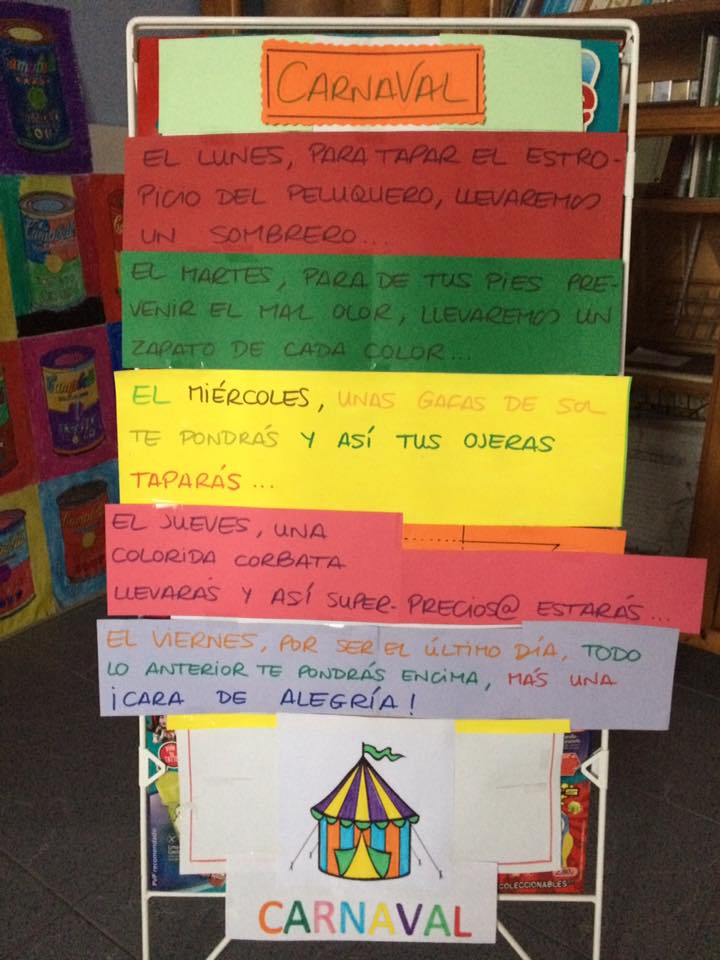 CARNAVAL
EL LUNES, PARA TAPAR EL ESTRO-
PICIO DEL PELUQUERO, LLEVAREMOS
UN SOMBRERO...
EL MARTES, PARA DE TUS PIES PRE-
VENIR EL MAL OLOR, LLEVAREMOS UN
ZAPATO DE CADA COLOR...
EL MIÉRCOLES, UNAS GAFAS DE SOL
TE PONDRÁS Y ASÍ TUS OJERAS
TAPARÁS...
EL JUEVES, UNA
COLORIDA CORBATA
LLEVARÁS Y ASÍ SUPER-PRECIOS@ ESTARÁS...
EL VIERNES, POR SER EL ÚLTIMO DÍA, TODO
LO ANTERIOR TE PONDRÁS ENCIMA, MÁS UNA
¡CARA DE ALEGRÍA!
CARNAVAL
PVP recomendado
COLECCIONABLES